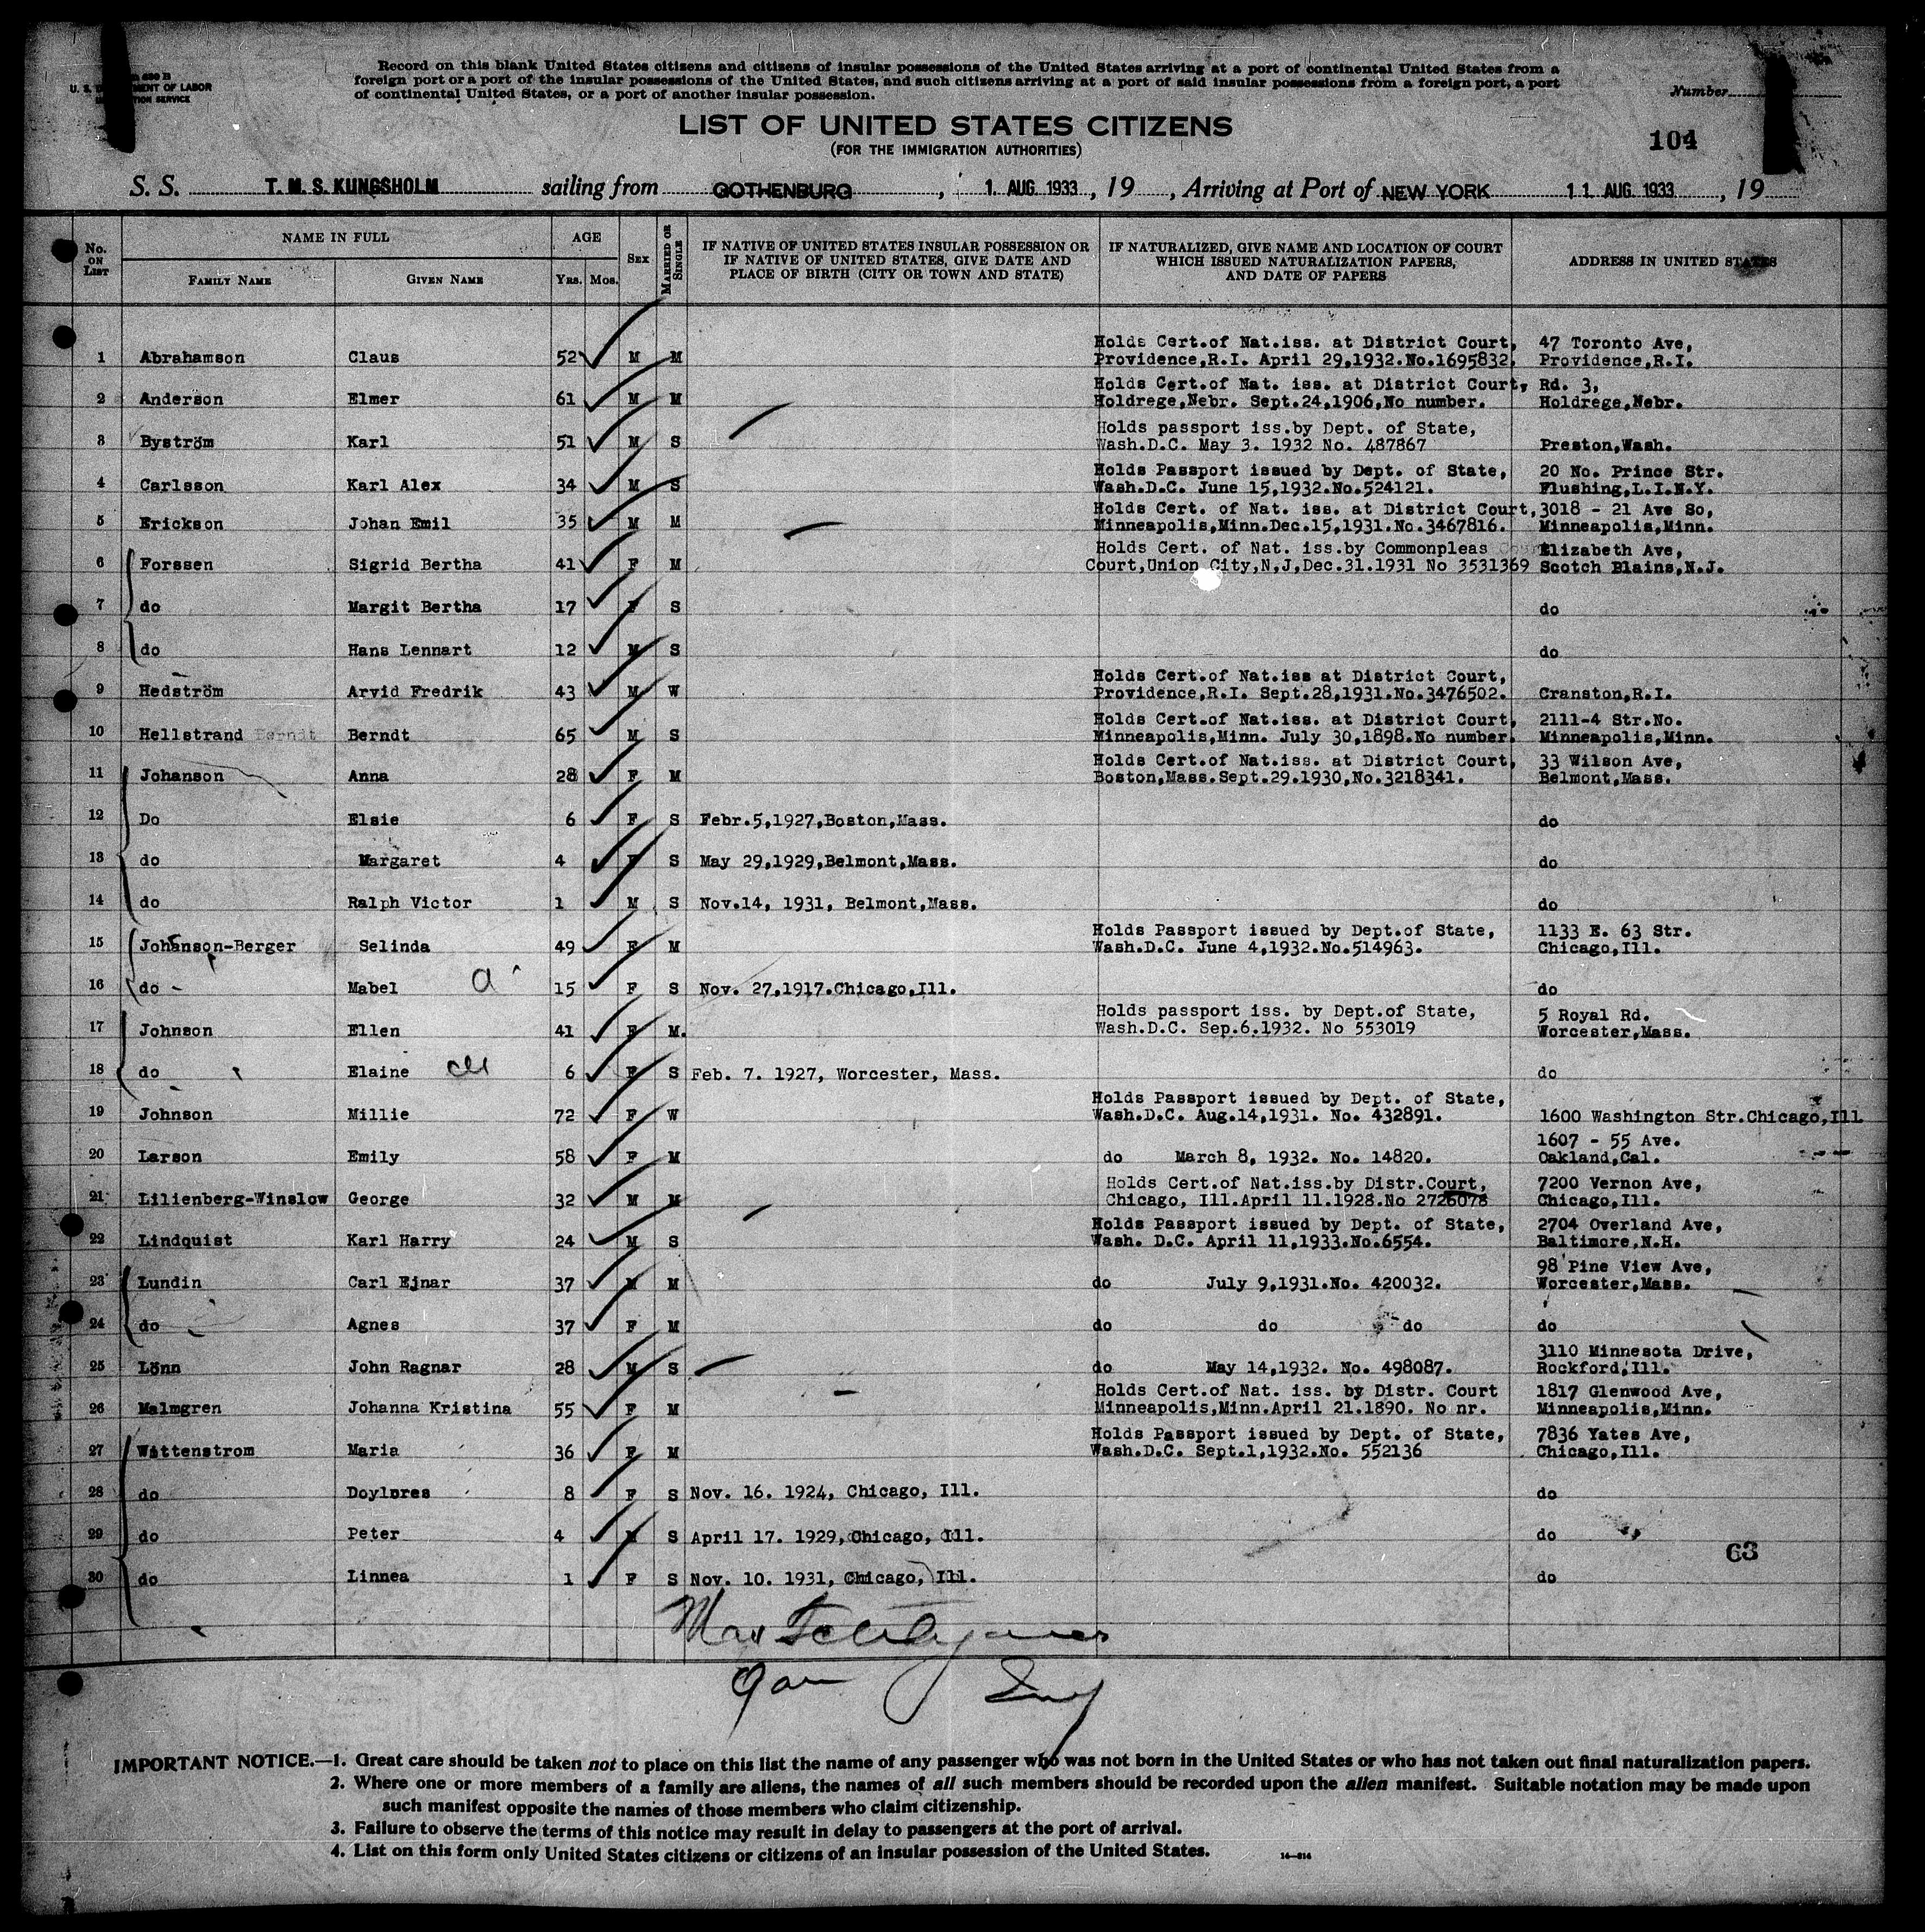 Record on this blank United States citizens and citizens of insular possessions of the United States arriving at a port of continental United States from a
foreign port or a port of the insular possessions of the United States, and such citizens arriving at a port of said insular possessions from a foreign port, a port
of continental United States, or a port of another insular possession.
U. S. DEPARTMENT OF LABOR
SERVICE
Number
LIST OF UNITED STATES CITIZENS
(FOR THE IMMIGRATION AUTHORITIES)
104
S. S. T. M. S. KUNGSHOLM sailing from GOTHENBURG, 1. AUG. 1933, 19 , Arriving at Port of NEW YORK 11. AUG. 1933, 19
No. ON LIST NAME IN FULL AGE SEX MARRIED OR SINGLE IF NATIVE OF UNITED STATES INSULAR POSSESSION OR IF NATIVE OF UNITED STATES, GIVE DATE AND PLACE OF BIRTH (CITY OR TOWN AND STATE) IF NATURALIZED, GIVE NAME AND LOCATION OF COURT WHICH ISSUED NATURALIZATION PAPERS, AND DATE OF PAPERS ADDRESS IN UNITED STATES
FAMILY NAME GIVEN NAME YRS. MOS.
Holds Cert.of Nat.iss. at District Court, 47 Toronto Ave,
1 Abrahamson Claus 52 M M Providence,R.I. April 29,1932.No.1695832. Providence,R.I.
Holds Cert.of Nat. iss. at District Court, Rd. 3,
2 Anderson Elmer 61 M M Holdrege,Nebr. Sept.24,1906,No number. Holdrege,Nebr.
Holds passport iss.by Dept. of State,
3 Byström Karl 51 M S Wash.D.C. May 3. 1932 No. 487867 Preston,Wash.
Holds Passport issued by Dept. of State, 20 No. Prince Str.
4 Carlsson Karl Alex 34 M S Wash.D.C. June 15,1932.No.524121. Flushing,L.I.N.Y.
Holds Cert. of Nat. iss. at District Court, 3018 - 21 Ave So,
5 Erickson Johan Emil 35 M M Minneapolis,Minn.Dec.15,1931.No.3467816. Minneapolis,Minn.
Holds Cert. of Nat. iss.by Commonpleas Elizabeth Ave,
6 Forssen Sigrid Bertha 41 F M Court,Union City,N,J,Dec.31.1931 No 3531369 Scotch Plains,N.J.
7 do Margit Bertha 17 F S do
8 do Hans Lennart 12 M S do
Holds Cert.of Nat.iss at District Court,
9 Hedström Arvid Fredrik 43 M W Providence,R.I. Sept.28,1931.No.3476502. Cranston,R.I.
Holds Cert.of Nat.iss. at District Court, 2111-4 Str.No.
10 Hellstrand Berndt 65 M S Minneapolis,Minn. July 30,1898.No number. Minneapolis,Minn.
Holds Cert.of Nat.iss. at District Court, 33 Wilson Ave,
11 Johanson Anna 28 F M Boston,Mass.Sept.29.1930,No.3218341. Belmont,Mass.
12 Do Elsie 6 F S Febr.5,1927,Boston,Mass. do
13 do Margaret 4 F S May 29,1929,Belmont,Mass. do
14 do Ralph Victor 1 M S Nov.14, 1931, Belmont,Mass. do
Holds Passport issued by Dept.of State, 1133 E. 63 Str.
15 Johanson-Berger Selinda 49 F M Wash.D.C. June 4,1932.No.514963. Chicago,Ill.
16 do - Mabel a 15 F S Nov. 27,1917.Chicago,Ill. do
Holds passport iss. by Dept.of State, 5 Royal Rd.
17 Johnson Ellen 41 F M. Wash.D.C. Sep.6.1932. No 553019 Worcester,Mass.
18 do Elaine 6 F S Feb. 7. 1927, Worcester, Mass. do
Holds Passport issued by Dept. of State,
19 Johnson Millie 72 F W Wash.D.C. Aug.14,1931. No. 432891. 1600 Washington Str.Chicago,Ill
1607 - 55 Ave.
20 Larson Emily 58 F M do March 8, 1932. No. 14820. Oakland,Cal.
Holds Cert.of Nat.iss.by Distr.Court, 7200 Vernon Ave,
21 Lilienberg-Winslow George 32 M M Chicago, Ill.April 11.1928.No 2726078 Chicago,Ill.
Holds Passport issued by Dept. of State, 2704 Overland Ave,
22 Lindquist Karl Harry 24 M S Wash. D.C. April 11,1933.No.6554. Baltimore,N.H.
98 Pine View Ave,
23 Lundin Carl Ejnar 37 M M do July 9,1931.No. 420032. Worcester,Mass.
24 do Agnes 37 F M do do do do
3110 Minnesota Drive,
25 Lönn John Ragnar 28 M S do May 14,1932. No. 498087. Rockford,Ill.
Holds Cert.of Nat. iss. by Distr. Court 1817 Glenwood Ave,
26 Malmgren Johanna Kristina 55 F M Minneapolis,Minn.April 21.1890. No nr. Minneapolis,Minn.
Holds Passport issued by Dept. of State, 7836 Yates Ave,
27 Wattenstrom Maria 36 F M Wash.D.C. Sept.1,1932.No. 552136 Chicago,Ill.
28 do Doylores 8 F S Nov. 16. 1924, Chicago, Ill. do
29 do Peter 4 M S April 17. 1929, Chicago, Ill. do
63
30 do Linnea 1 F S Nov. 10. 1931, Chicago, Ill. do
IMPORTANT NOTICE.—1. Great care should be taken not to place on this list the name of any passenger who was not born in the United States or who has not taken out final naturalization papers.
2. Where one or more members of a family are aliens, the names of all such members should be recorded upon the alien manifest. Suitable notation may be made upon
such manifest opposite the names of those members who claim citizenship.
3. Failure to observe the terms of this notice may result in delay to passengers at the port of arrival.
4. List on this form only United States citizens or citizens of an insular possession of the United States.
14—814